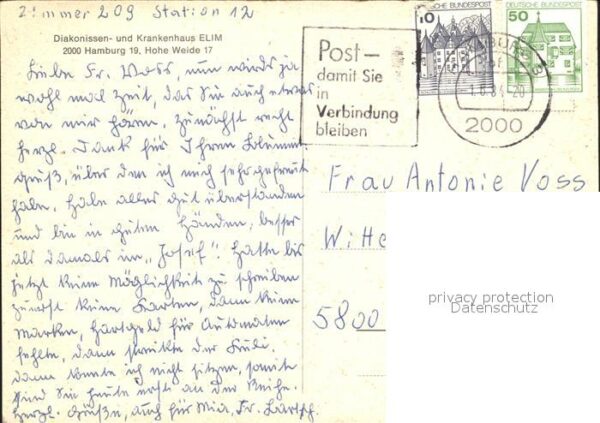 Zimmer 209 Station 12
Diakonissen- und Krankenhaus ELIM
2000 Hamburg 19, Hohe Weide 17
Liebe Fr. Voss, nun wirds ja
wohl mal Zeit, das Sie auch etwas
von mir hören. Zunächst recht
herzl. Dank für Ihren Blumen
gruß, über den ich mich sehr gefreut
habe. Habe alles gut überstanden
und bin in guten Händen, besser
als damals im „Josef“. Hatte bis
jetzt keine Möglichkeit zu schreiben
zuerst keine Karten, dann keine
Marken, Hartgeld für Automaten
fehlte, dann streikte der Kuli.
Dann konnte ich nicht sitzen, somit
sind Sie heute erst an der Reihe.
Herzl. Grüße, auch für Mia, Fr.
Post-
damit Sie
in
Verbindung
bleiben
DEUTSCHE BUNDESPOST
50
2000
Frau Antonie Voss
Witte
5800
privacy protection
Datenschutz